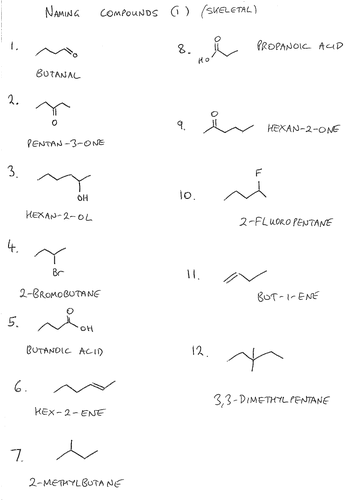 NAMING COMPOUNDS (1) (SKELETAL)
1.
O
BUTANAL
2.
O
PENTAN-3-ONE
3.
OH
HEXAN-2-OL
4.
Br
2-BROMOBUTANE
5.
O
OH
BUTANOIC ACID
6.
HEX-2-ENE
7.
2-METHYLBUTANE
8.
O
HO
PROPANOIC ACID
9.
O
HEXAN-2-ONE
10.
F
2-FLUOROPENTANE
11.
BUT-1-ENE
12.
3,3-DIMETHYLPENTANE